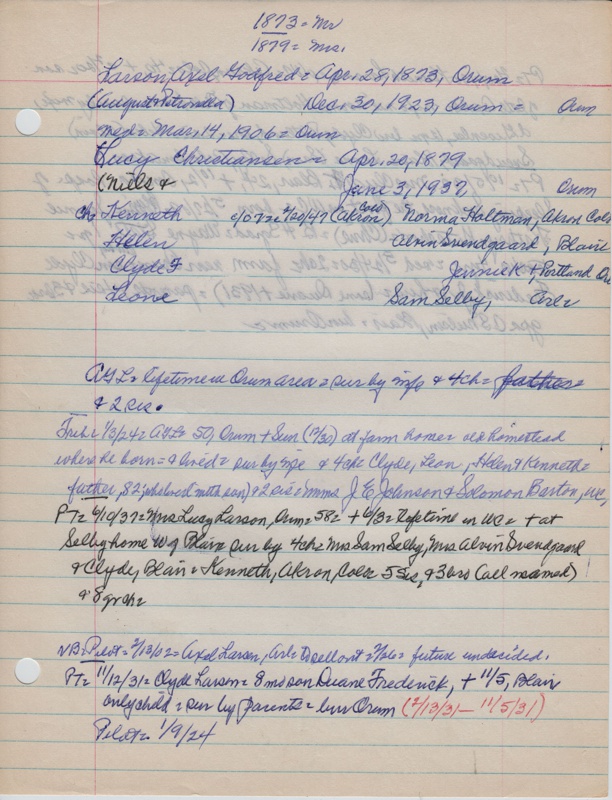 1873 = Mr
1879 = Mrs.
Larson, Axel Godfred = Apr. 28, 1873, Orum
(August & Petronella) Dec. 30, 1923, Orum = Orum
med = Mar, 14, 1906 = Orum
Lucy Christiansen = Apr. 20, 1879
(Niels & June 3, 1937 Orum
ch: Kenneth c/o 7 = 4/20/47 (Akron, Colo) Norma Haltman, Akron Colo
Helen Alvin Svendgaard, Blair
Clyde F Jennie K + Portland Ore
Leone Sam Selby, Arl =
AGL = lifetime in Orum area = sur by wife & 4ch = father
& 2 sis.
Trib = 1/3/24 = AGL = 50, Orum + Sun (12/30) at farm home = old homestead
where he born = & lived = sur by wife & 4ch = Clyde, Leon, Helen & Kenneth =
father, 82, who lived with son) & 2 sis = Mmes J. E. Johnson & Solomon Barton, WC,
PT = 6/10/37 = Mrs Lucy Larson, Orum = 58 = + 6/3 = lifetime in WC = + at
Selby home W of Blair sur by 4ch = Mrs Sam Selby, Mrs Alvin Svendgaard
& Clyde, Blair & Kenneth, Akron, Colo = 5 sis, & 3 bro (all named)
& 8 grch =
NB = Pilot = 2/13/02 = Axel Larsen, Arl = to sell out = 2/26 = future undecided.
PT = 11/12/31 = Clyde Larson = 8 mo son Duane Frederick, + 11/5, Blair
only child = sur by parents = bur Orum (2/13/31 - 11/5/31)
Pilot = 1/9/24